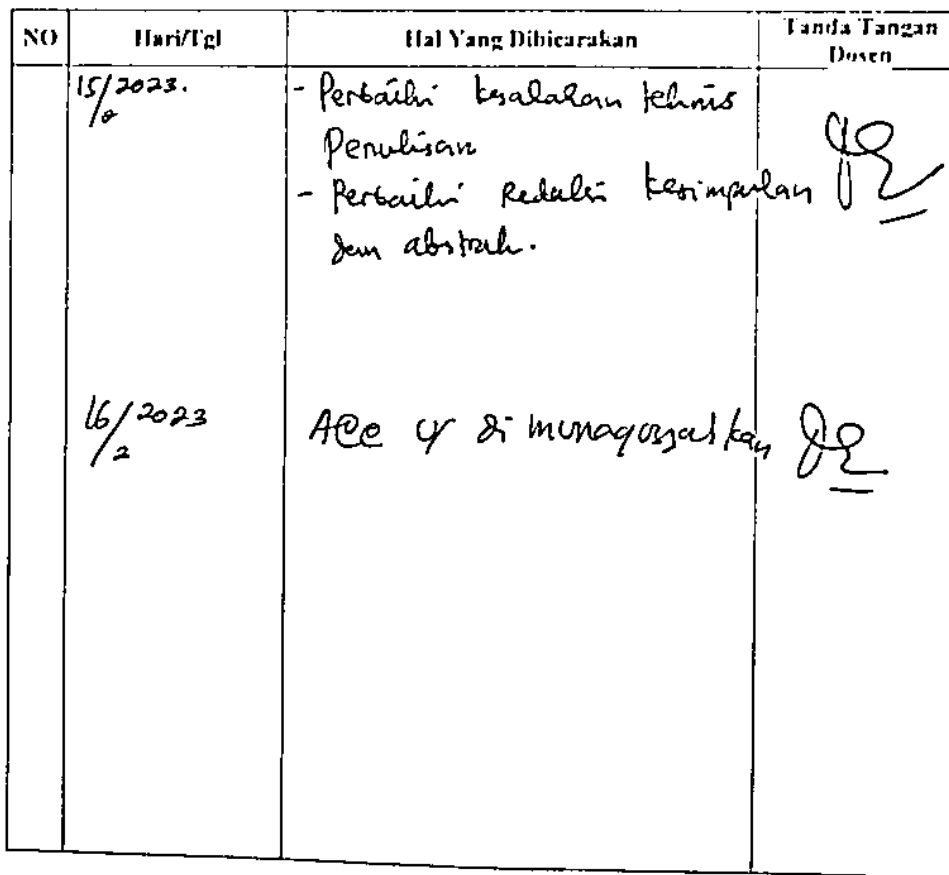 NO Hari/Tgl Hal Yang Dibicarakan Tanda Tangan
Dosen
15/2023.
- Perbaiki kesalahan tehnis
Penulisan
- Perbaiki Redaksi kesimpulan
dan abstrak.
16/2 2023 Acc di munaqosyahkan